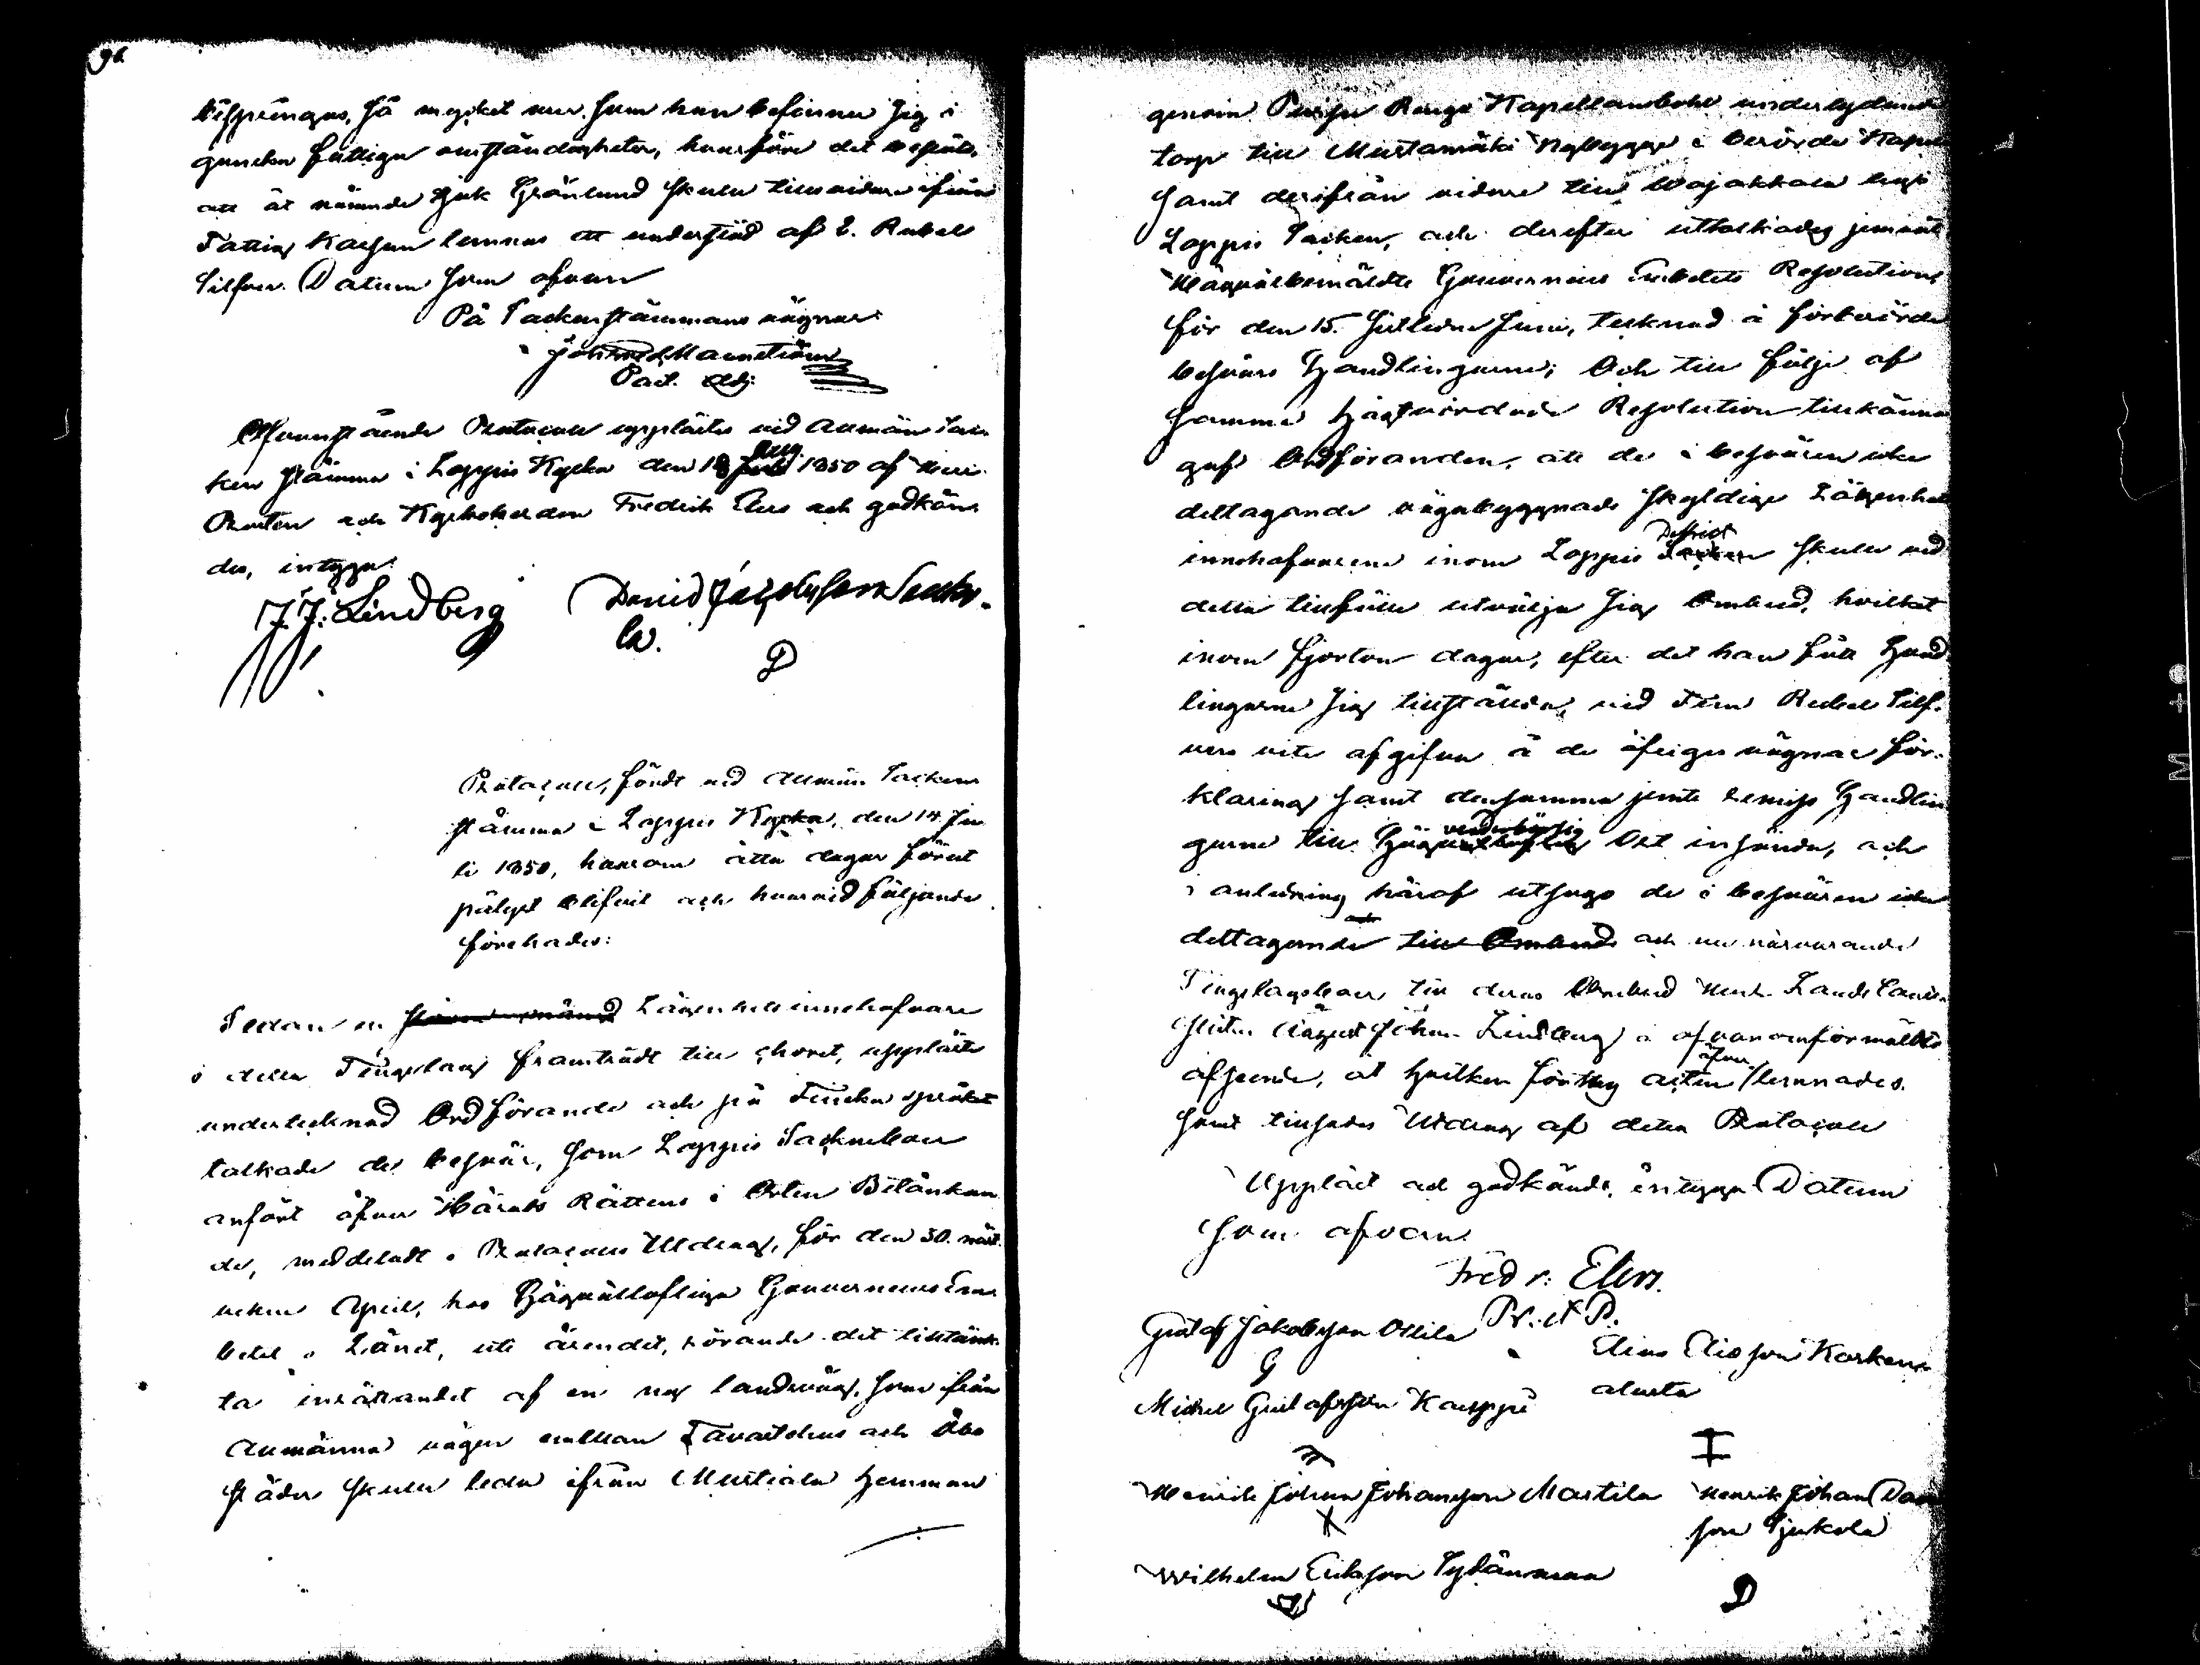 96
så mycket mer som han befinner sig i
ganska fattiga omständigheter, hvarföre det
att åt nämnde sjuk Grönlund skulle tillsvidare ifrån
Fattig Kassan lemnas ett understöd af 2. Rubel
Silfver. Datum som ofvan
På Sockenstämmans vägnar
Past. Adj.
Ofvanstående Protocoll upplästes vid Allmän Soc-
ken stämma i Loppis Kyrka den 18 Aug. 1850 af Herr
och Kyrkoherden Fredrik Elers och godkän-
des, intyga:
J. J. Lindberg
David
la.
D
Protocoll, fördt vid Allmän Socken
stämma i Loppis Kyrka, den 14 Ju-
li 1850, hvarom åtta dagar förut
pålyst blifvit och hvarvid följande
förehades:
Sedan en Lägenhets innehafvare
i detta Tingslag framträdt till choret, uppläste
undertecknad Ordförande och på Finska språket
tolkade de besvär, som Loppis Sockneboer
anfört öfver Härads Rättens i Orten Betänkan-
de, meddeladt i Protocolls Utdrag, för den 30. näst-
vekne April, hos Högvällofliga Gouverneurs Em-
betet i Länet, uti ärendet, rörande det tilltänk-
ta inrättandet af en ny landsväg, som ifrån
Allmänna vägen emellan Tavastehus och Åbo
städer skulle leda ifrån Mustiala Hemman
genom Kapellansbohl underlydande
torp till Mustamäki Nybygge i berörde Kapell
samt derifrån vidare till Wojakkala by i
Loppis Socken, och derefter uttolkades jemväl
Högvälbemäldte Gouverneurs Embetets Resolution
för den 15. sistledne Juni, tecknad å förberörde
besvärs Handlingarne; Och till följe af
samma Högtvördade Resolution tillkänna
gaf Ordföranden, att de i besvären icke
deltagande vägabyggnads skyldige Lägenhets
innehafvarene inom Loppis District skulle vid
detta tillfälle utvälja sig Ombud, hvilket
inom fjorton dagar, efter det han fått Hand-
lingarne sig tillställda, vid Fem Rubel Silf-
vers vite afgifva å de öfriges vägnar för-
klaring samt densamma jemte remiss Handlin-
garne till vederbörlig Ort insända, och
i anledning häraf utsågo de i besvären icke
deltagande och nu närvarande
Tingslagsboer till deras Ombud Herr Lands
August Johan Lindberg i ofvanomförmäldte
afseende, åt hvilken äfven lemnades.
samt tillsades Utdrag af detta Protocoll
Uppläst och godkändt, intyga Datum
som ofvan
Fredr: Elers.
Pr. et P.
Gustaf Jakobsson Ollila
G
Elias Eliasson Korken-
alusta
Michel Gustafsson Kauppi
Henrik Johan Johansson Mastila
X
Henrik Johan Davi
son Sjukola
Wilhelm Eriksson Sydänmaa
D